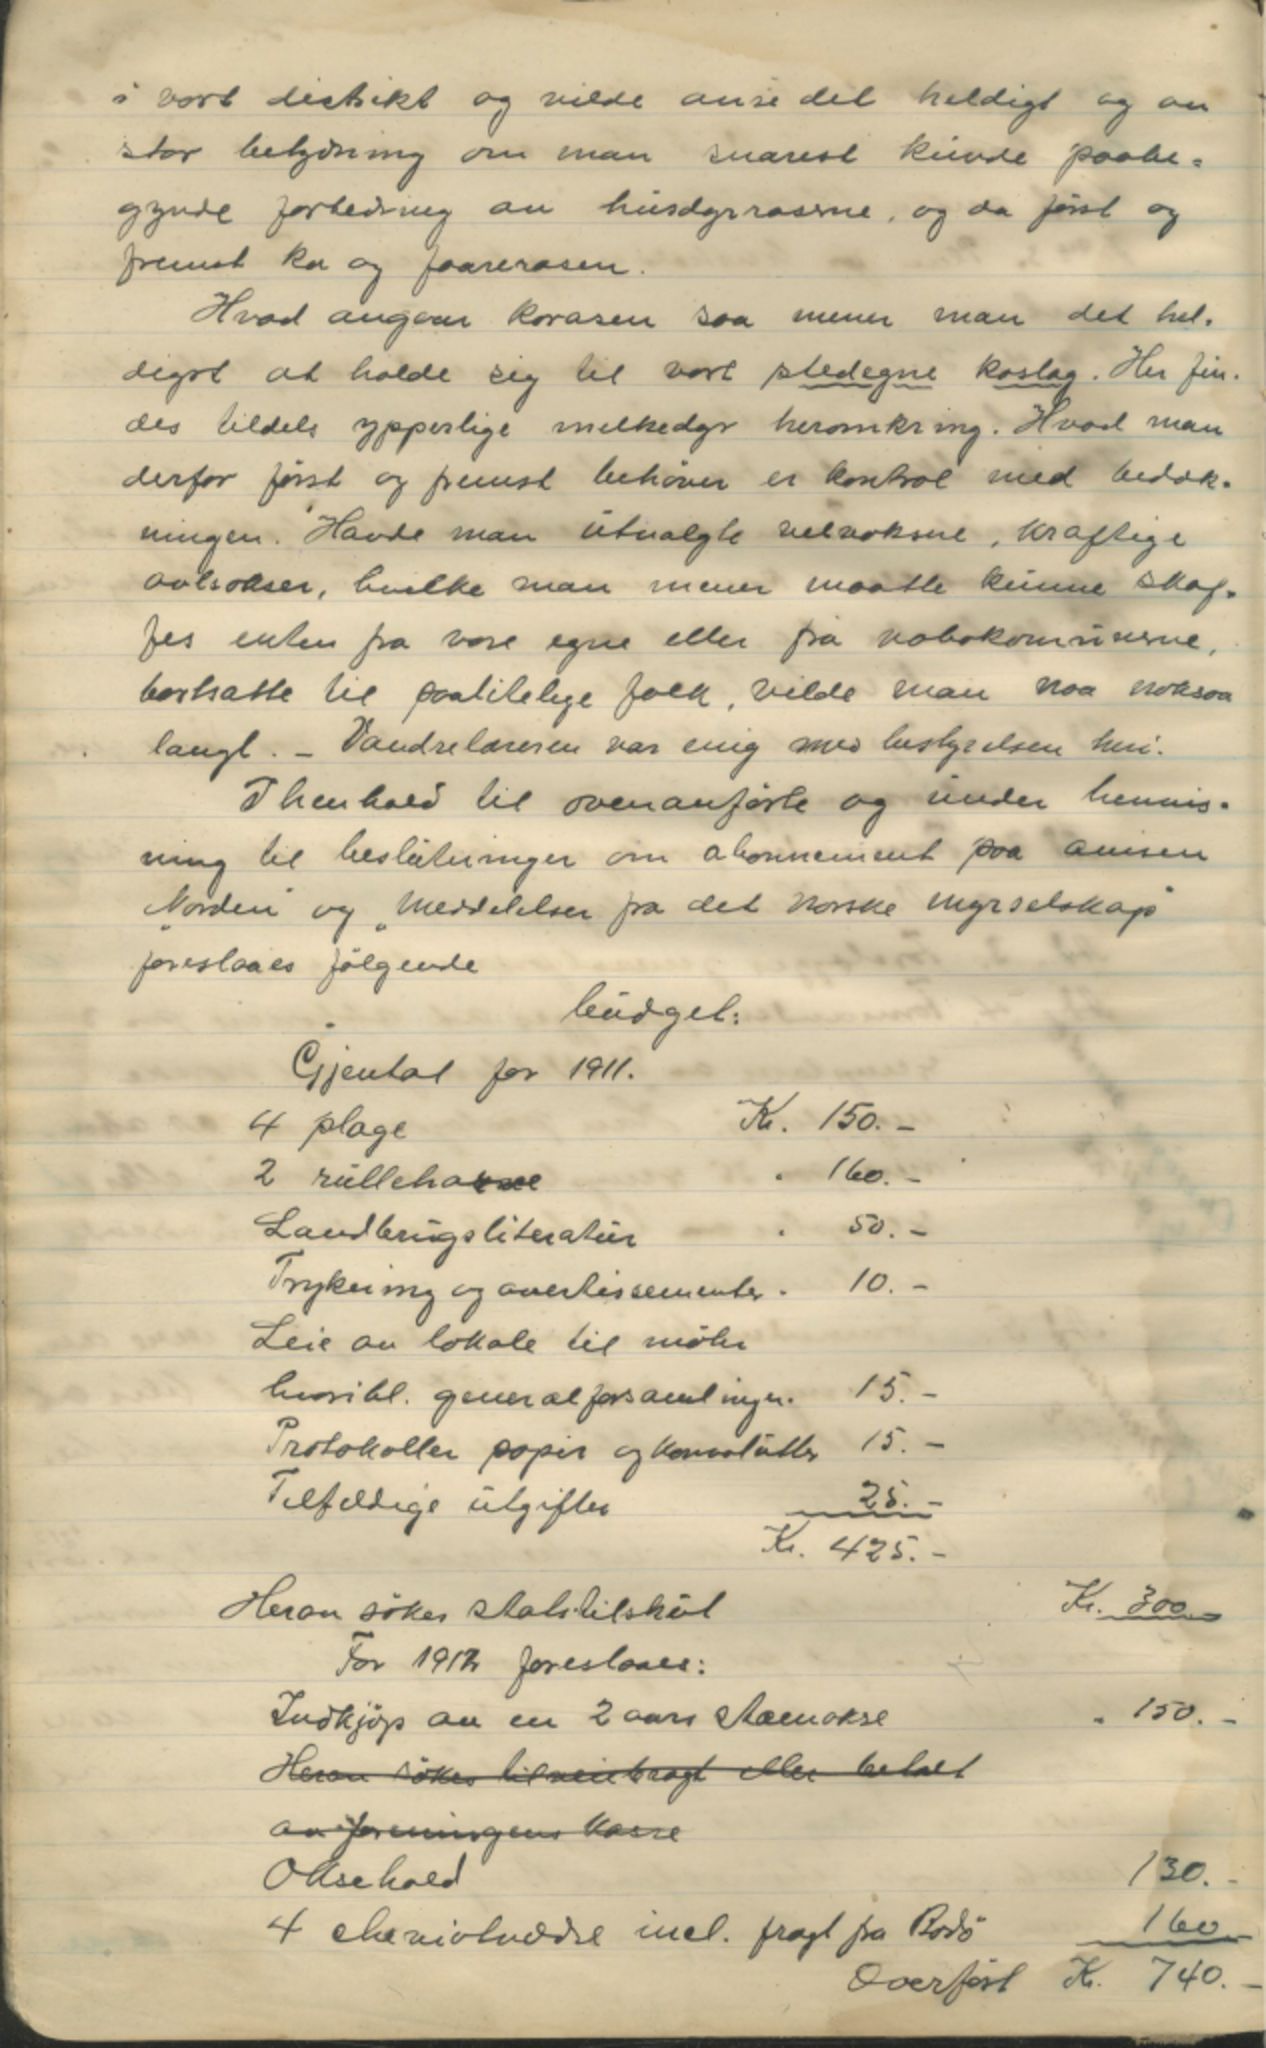 i vort distrikt og vilde anse det heldigt og av
stor betydning om man snarest kunde paabe-
gynde forbedring av husdyrraserne, og da først og
fremst ko og faarerasen.
Hvad angaar korasen saa mener man det hel-
digst at holde sig til vort stedegne koslag. Her fin-
des tildels ypperlige melkedyr heromkring. Hvad man
derfor først og fremst behøver er kontrol med bedæk-
ningen. Havde man utvalgte velvoksne, kraftige
avlsokser, hvilke man mener maatte kunne skaf-
fes enten fra vore egne eller fra nabokommunerne,
bortsatte til paalitelige folk, vilde man naa noksaa
langt. - Vandrelæreren var enig med bestyrelsen heri.
I henhold til ovenanførte og under henvis-
ning til beslutninger om abonnement paa avisen
"Norden" og "Meddelelser fra det norske myrselskap"
foreslaaes følgende
budget:
Gjental for 1911.
4 plage Kr. 150.-
2 rulleha " 160.-
Landbrugsliteratur " 50.-
Trykning og avertissementer " 10.-
Leie av lokale til møter
hvoribl. generalforsamlinger. 15.-
Protokoller papir og konvolutter 15.-
Tilfældige utgifter 25.-
Kr. 425.-
Herav søkes statstilskut Kr. 300.-
For 1912 foreslaaes:
Indkjøp av en 2 aars stamokse " 150.-
Herav søkes tilveiebragt eller betalt
av foreningens kasse
Oksehold 130.-
4 cheviotvædre incl. fragt fra Bodø 160.-
Overført Kr. 740.-